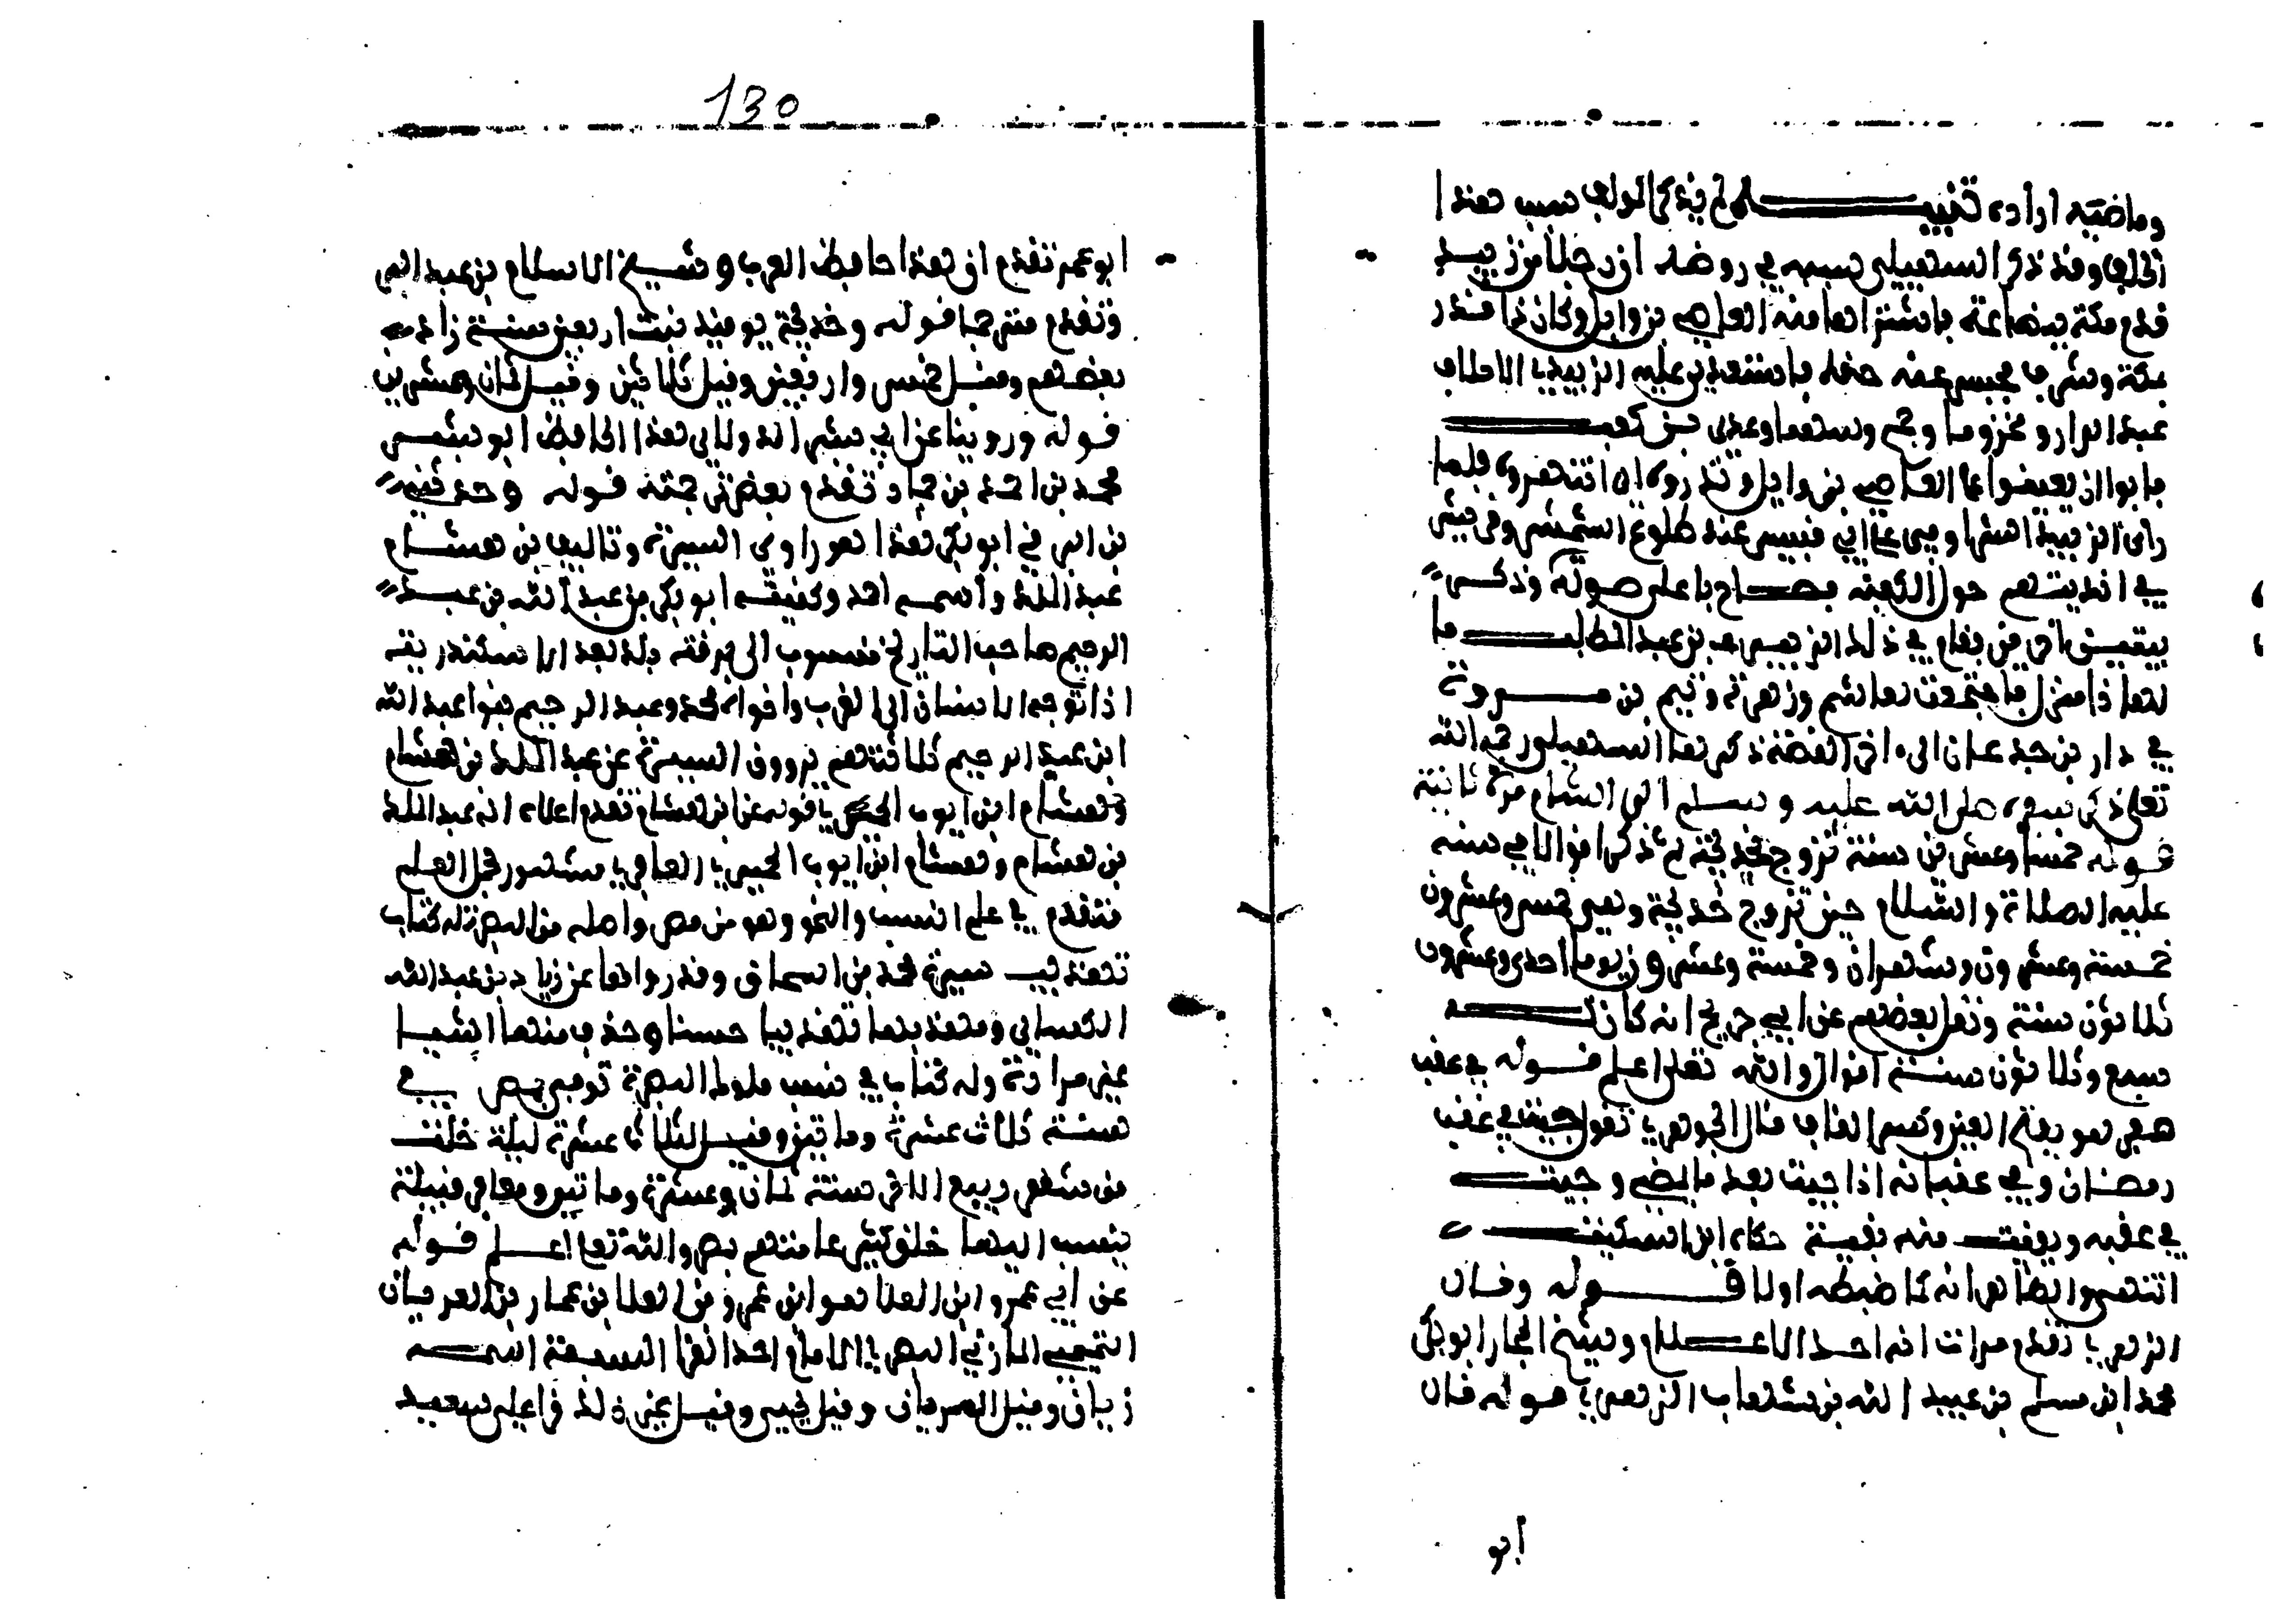 وما ضيه اراده تنبيه لم يذكر المولف سبب هذا
الحلف وقد ذكر السهيلي سببه في روضه ان رجلا من زبيد
قدم مكة ببضاعة فاشتراها منه العاصي بن وايل وكان ذا قدر
بمكة وشرف فحبس عنه حقه فاستعدى عليه الزبيدي الاحلاف
عبد الدار ومخزوما وجمح وسهما وعدي بن كعب
فابوا ان يعينوا على العاصي بن وايل وزبروه اي انتهروه فلما
راى الزبيدي الشر اوفى على ابي قبيس عند طلوع الشمس وقريش
في انديتهم حول الكعبة فصاح باعلى صوته وذكر
بيتين اخرين فقام في ذلك الزبير بن عبد المطلب ما
لهذا منزل فاجتمعت هاشم وزهرة وتيم بن مرة
في دار بن جدعان الى اخر القصة ذكرها السهيلي رحمه الله
تعلى ذكر سفره صلى الله عليه وسلم الى الشام مرة ثانية
قوله خمسا وعشرين سنة تزوج خديجة ثم ذكر اقوالا في سنه
عليه الصلاة والسلام حين تزوج خديجة وهي خمس وعشرون
خمسة وعشرون وشهران وخمسة وعشرون يوما احدى وعشرون
ثلاثون سنة ونقل بعضهم عن ابي جريج انه كان
سبع وثلاثون سنة اقوال والله تعلى اعلم قوله في عقب
صفر هو بفتح العين وكسر القاف قال الجوهري تقول جيت في عقب
رمضان وفي عقبانه اذا جيت بعد ما يمضي وجيت
في عقبه وبقيت منه بقية حكاه ابن السكيت
انتهى والظاهر انه كما ضبطه اولا قوله وقال
الزهري تقدم مرات انه احد الاعلام وشيخ الحجاز ابو بكر
محمد ابن مسلم بن عبيد الله بن شهاب الزهري قوله قال
ابو
130
ابو عمر تقدم ان هذا حافظ الغرب وشيخ الاسلام بن عبد البر
وتقدم مترجما قوله وخديجة يوميذ بنت اربعين سنة زاد
بعضهم وقيل خمس واربعين وقيل ثلاثين وقيل ثمان وعشرين
قوله وروينا عن ابي بشر الدولابي هذا الحافظ ابو بشر
محمد بن احمد بن حماد تقدم بعض ترجمته قوله وحدثنيه
بن البرقي ابو بكر هذا هو راوي السيرة وتاليف بن هشام
عبد الملك واسمه احمد وكنيته ابو بكر بن عبد الله بن عبد
الرحيم صاحب التاريخ منسوب الى برقة بلد بعد الاسكندرية
اذا توجه الانسان الى الغرب واخواه محمد وعبد الرحيم بنوا عبد الله
ابن عبد الرحيم ثلاثتهم يروون السيرة عن عبد الملك بن هشام
وهشام ابن ايوب الحميري قوله عن ابن هشام تقدم اعلاه انه عبد الملك
بن هشام وهشام ابن ايوب الحميري المعافري مشهور بحمل العلم
متقدم في علم النسب والنحو وهو من مصر واصله من البصرة له كتاب
تهذيب سيرة محمد بن اسحاق وقد رواها عن زياد بن عبد الله
البكائي وهذبها تهذيبا حسنا وحذف منها اشيا
غير مرادة وله كتاب في نسب ملوك توفي بمصر في
سنة ثلاث عشرة وماتين وقيل لثلاث عشرة ليلة خلت
من شهر ربيع الاخر سنة ثمان وعشرة وماتين ومعافر قبيلة
ينسب اليها خلق كثير عامتهم بمصر والله تعلى اعلم قوله
عن ابي عمرو ابن العلا هو ابن عمرو بن العلا بن عمار بن العريان
التميمي المازني البصري الامام احد القرا السبعة اسمه
زبان وقيل العريان وقيل يحيى وقيل غير ذلك قرا على سعيد